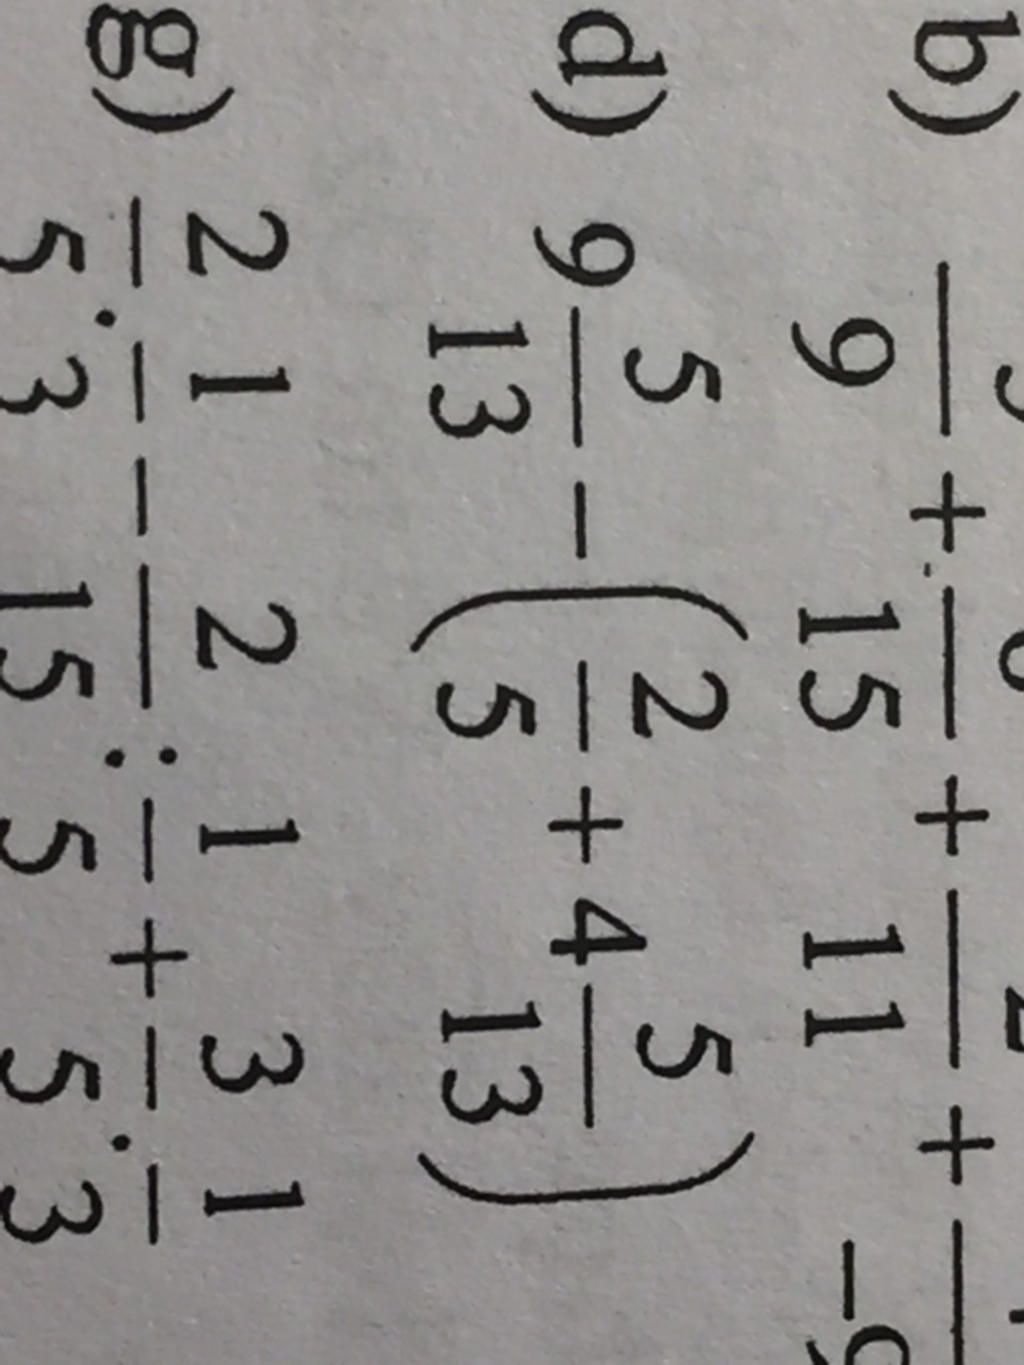 b) \frac{}{9} + \frac{}{15} + \frac{}{11} + \frac{}{-9}
d) 9\frac{5}{13} - \left(\frac{2}{5} + 4\frac{5}{13}\right)
g) \frac{2}{5} . \frac{1}{3} - \frac{2}{15} : \frac{1}{5} + \frac{3}{5} . \frac{1}{3}